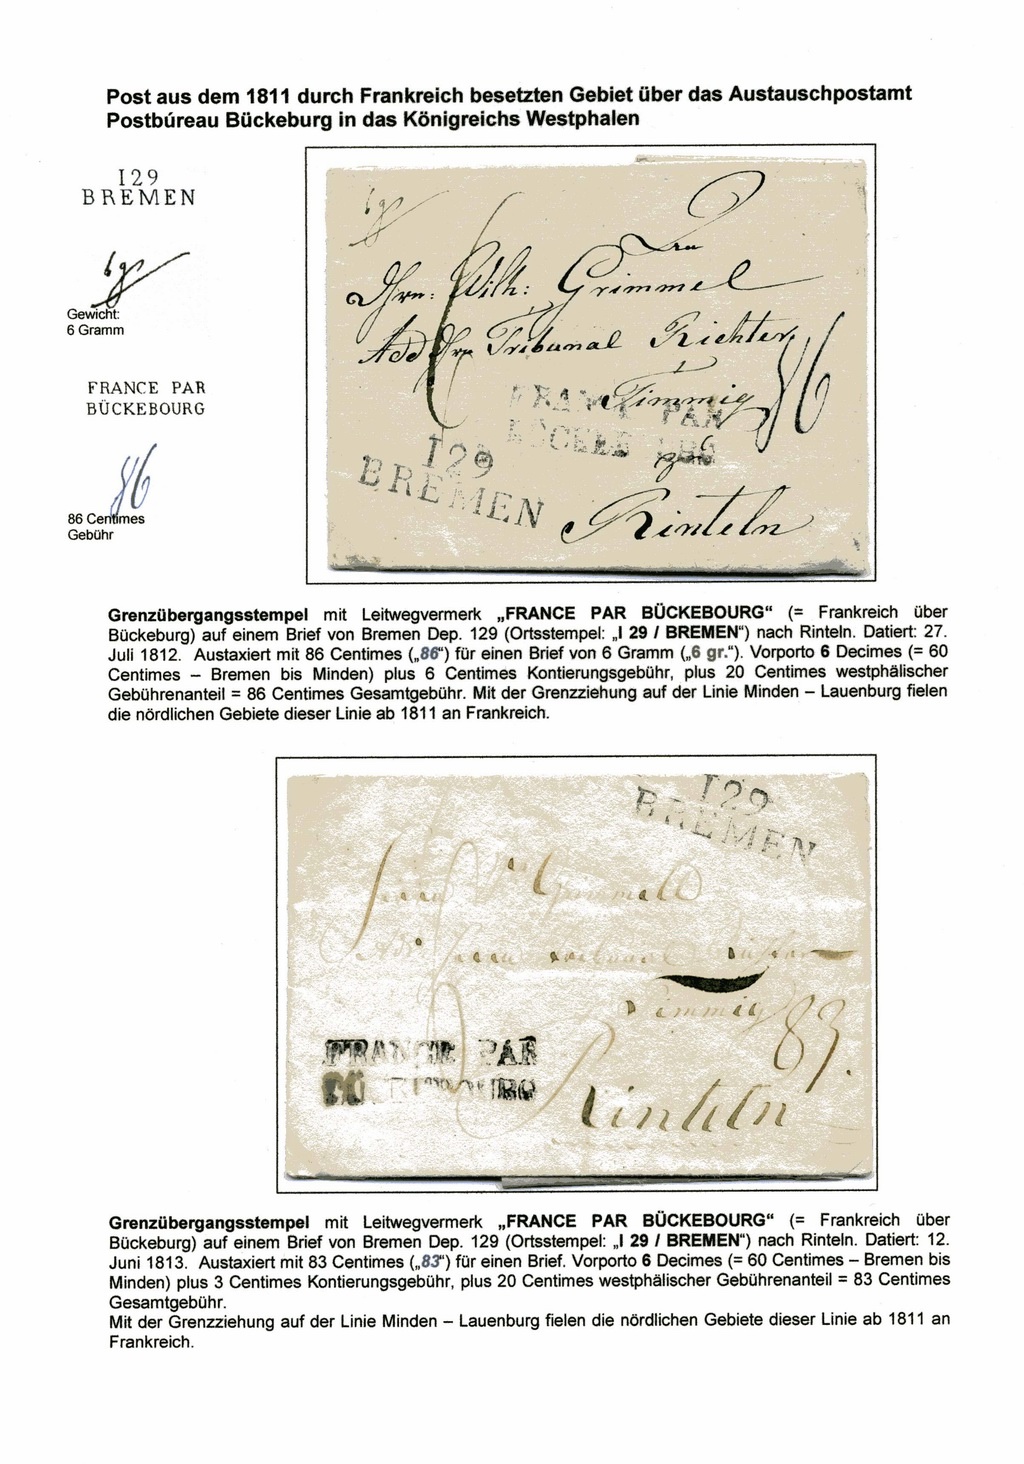 Post aus dem 1811 durch Frankreich besetzten Gebiet über das Austauschpostamt
Postbúreau Bückeburg in das Königreichs Westphalen
129
BREMEN
6 gr
Gewicht:
6 Gramm
FRANCE PAR
BÜCKEBOURG
86
86 Centimes
Gebühr
6 gr
Hrn: Wilh: Grimmel
Add Hrn Tribunal Richter
Timmig
86
FRANCE PAR
BÜCKEBOURG
129
BREMEN
Rinteln
Grenzübergangsstempel mit Leitwegvermerk „FRANCE PAR BÜCKEBOURG“ (= Frankreich über
Bückeburg) auf einem Brief von Bremen Dep. 129 (Ortsstempel: „I 29 / BREMEN“) nach Rinteln. Datiert: 27.
Juli 1812. Austaxiert mit 86 Centimes („86“) für einen Brief von 6 Gramm („6 gr.“). Vorporto 6 Decimes (= 60
Centimes – Bremen bis Minden) plus 6 Centimes Kontierungsgebühr, plus 20 Centimes westphälischer
Gebührenanteil = 86 Centimes Gesamtgebühr. Mit der Grenzziehung auf der Linie Minden – Lauenburg fielen
die nördlichen Gebiete dieser Linie ab 1811 an Frankreich.
129
BREMEN
Timmig
83.
FRANCE PAR
BÜCKEBOURG
Rinteln
Grenzübergangsstempel mit Leitwegvermerk „FRANCE PAR BÜCKEBOURG“ (= Frankreich über
Bückeburg) auf einem Brief von Bremen Dep. 129 (Ortsstempel: „I 29 / BREMEN“) nach Rinteln. Datiert: 12.
Juni 1813. Austaxiert mit 83 Centimes („83“) für einen Brief. Vorporto 6 Decimes (= 60 Centimes – Bremen bis
Minden) plus 3 Centimes Kontierungsgebühr, plus 20 Centimes westphälischer Gebührenanteil = 83 Centimes
Gesamtgebühr.
Mit der Grenzziehung auf der Linie Minden – Lauenburg fielen die nördlichen Gebiete dieser Linie ab 1811 an
Frankreich.